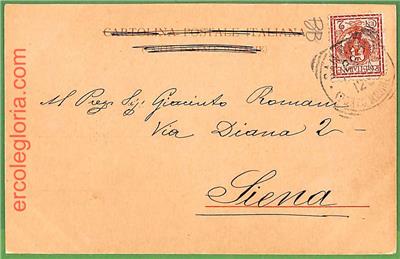 CARTOLINA POSTALE ITALIANA
Al Preg. Sig: Giacinto Romani
Via Diana 2 –
Siena
ercolegloria.com